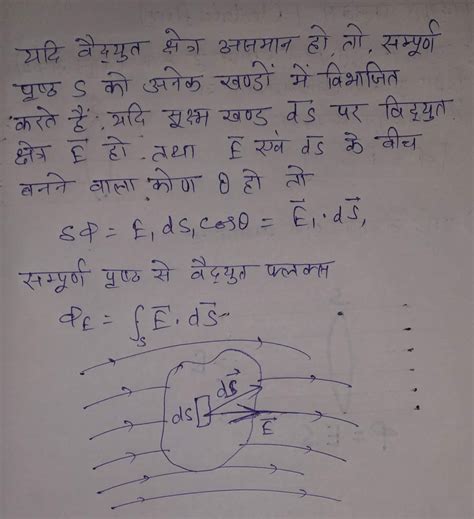 यदि वैद्युत क्षेत्र असमान हो, तो, सम्पूर्ण
पृष्ठ S को अनेक खण्डों में विभाजित
करते हैं, यदि सूक्ष्म खण्ड ds पर विद्युत
क्षेत्र E⃗ हो, तथा E⃗ एवं ds⃗ के बीच
बनने वाला कोण θ हो तो
SΦ = E₁ ds₁ cosθ = E⃗₁ · dS⃗₁
सम्पूर्ण पृष्ठ से वैद्युत फ्लक्स
Φ_E = ∫_S E⃗ · dS⃗
dS⃗
ds
E⃗